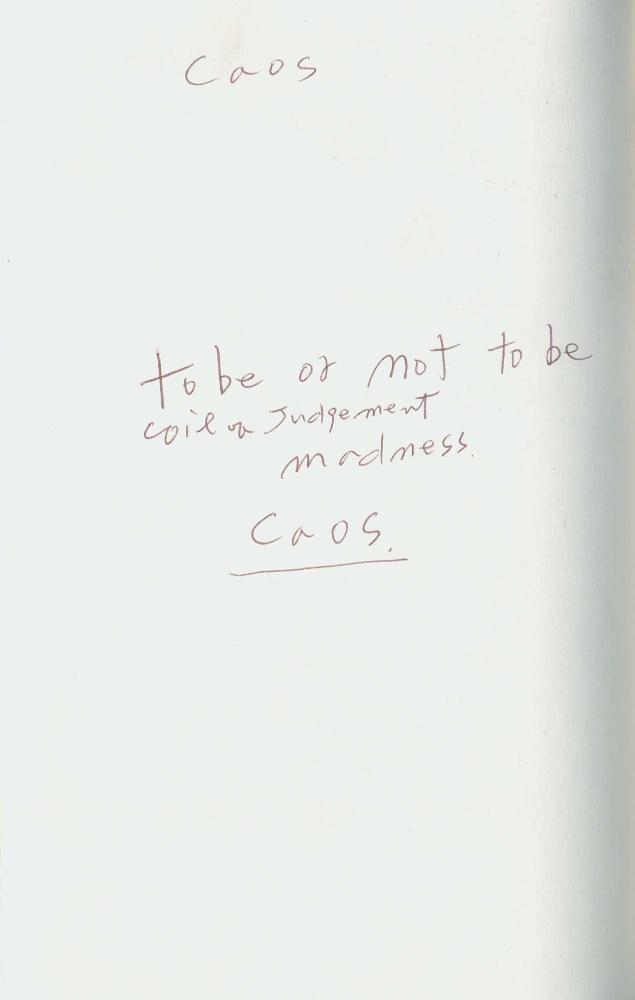 Caos
to be or not to be
coil or Judgement
madness.
Caos.